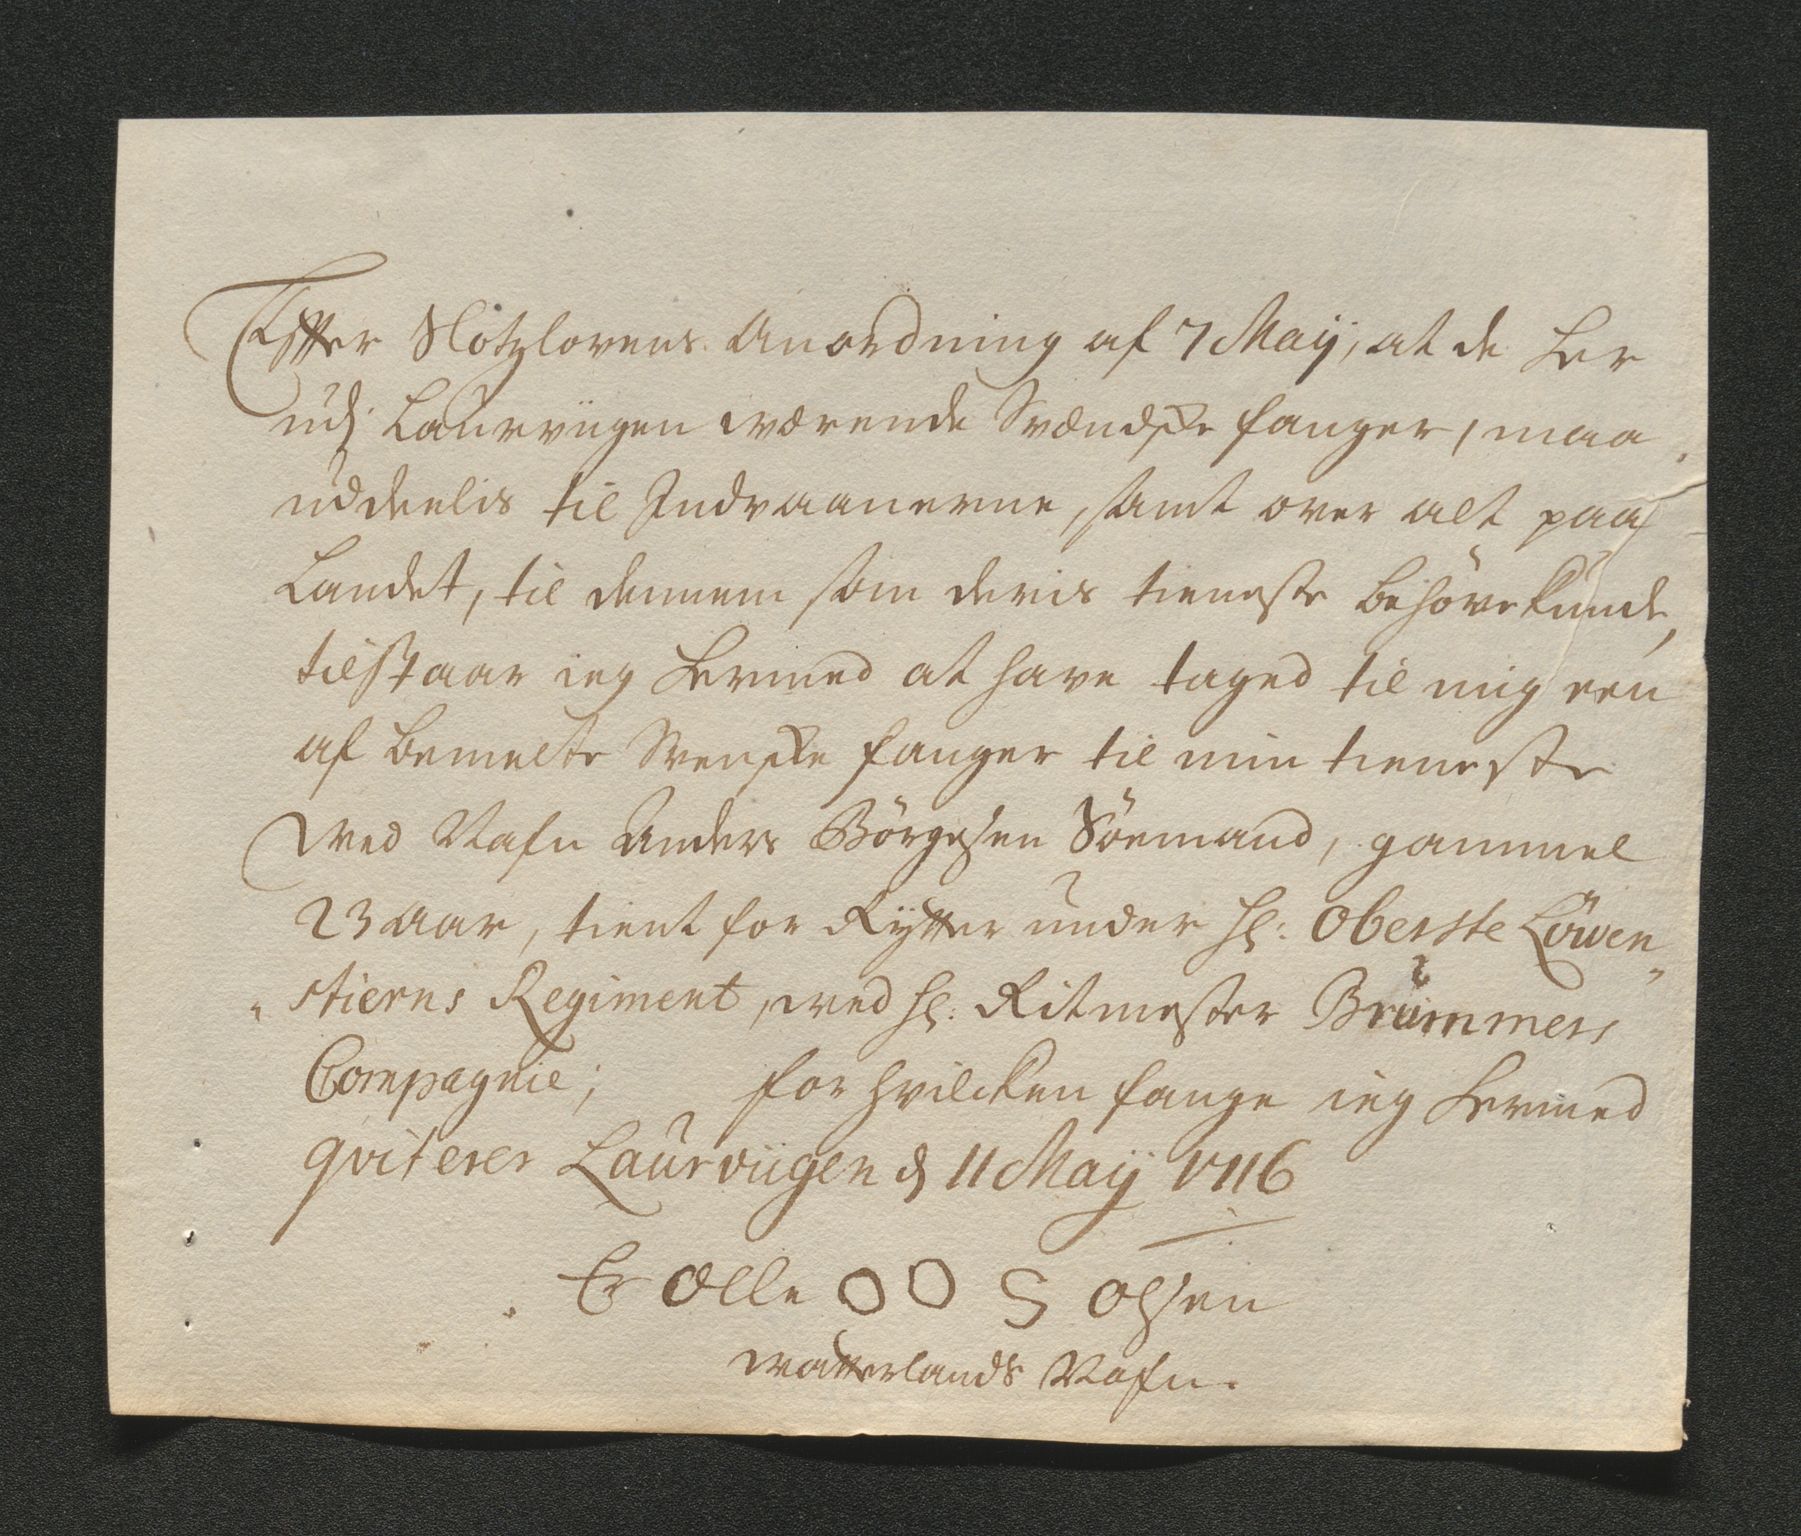 Effter Slotzlovens Anordning af 7 Maij, at de her
udj Laurviigen værende Svændske fanger, maa
uddeelis til Indvaanerne, samt over alt paa
Landet, til dennem som deris tieneste behöve kunde,
tilstaar ieg hermed at have taged til mig een
af bemelte Svenske fanger til min tieneste
ved Nafn Anders Börgesen Söemand, gammel
23 aar, tient for Rytter under Hr: Oberste Löwen„
„stierns Regiment, ved Hr: Ritmester Brummers
Compagnie; for hvilcken fange ieg hermed
qviterer Laurviigen d 11 Maij 1716
Olle OO S Olsen
Vatterlands Nafn.